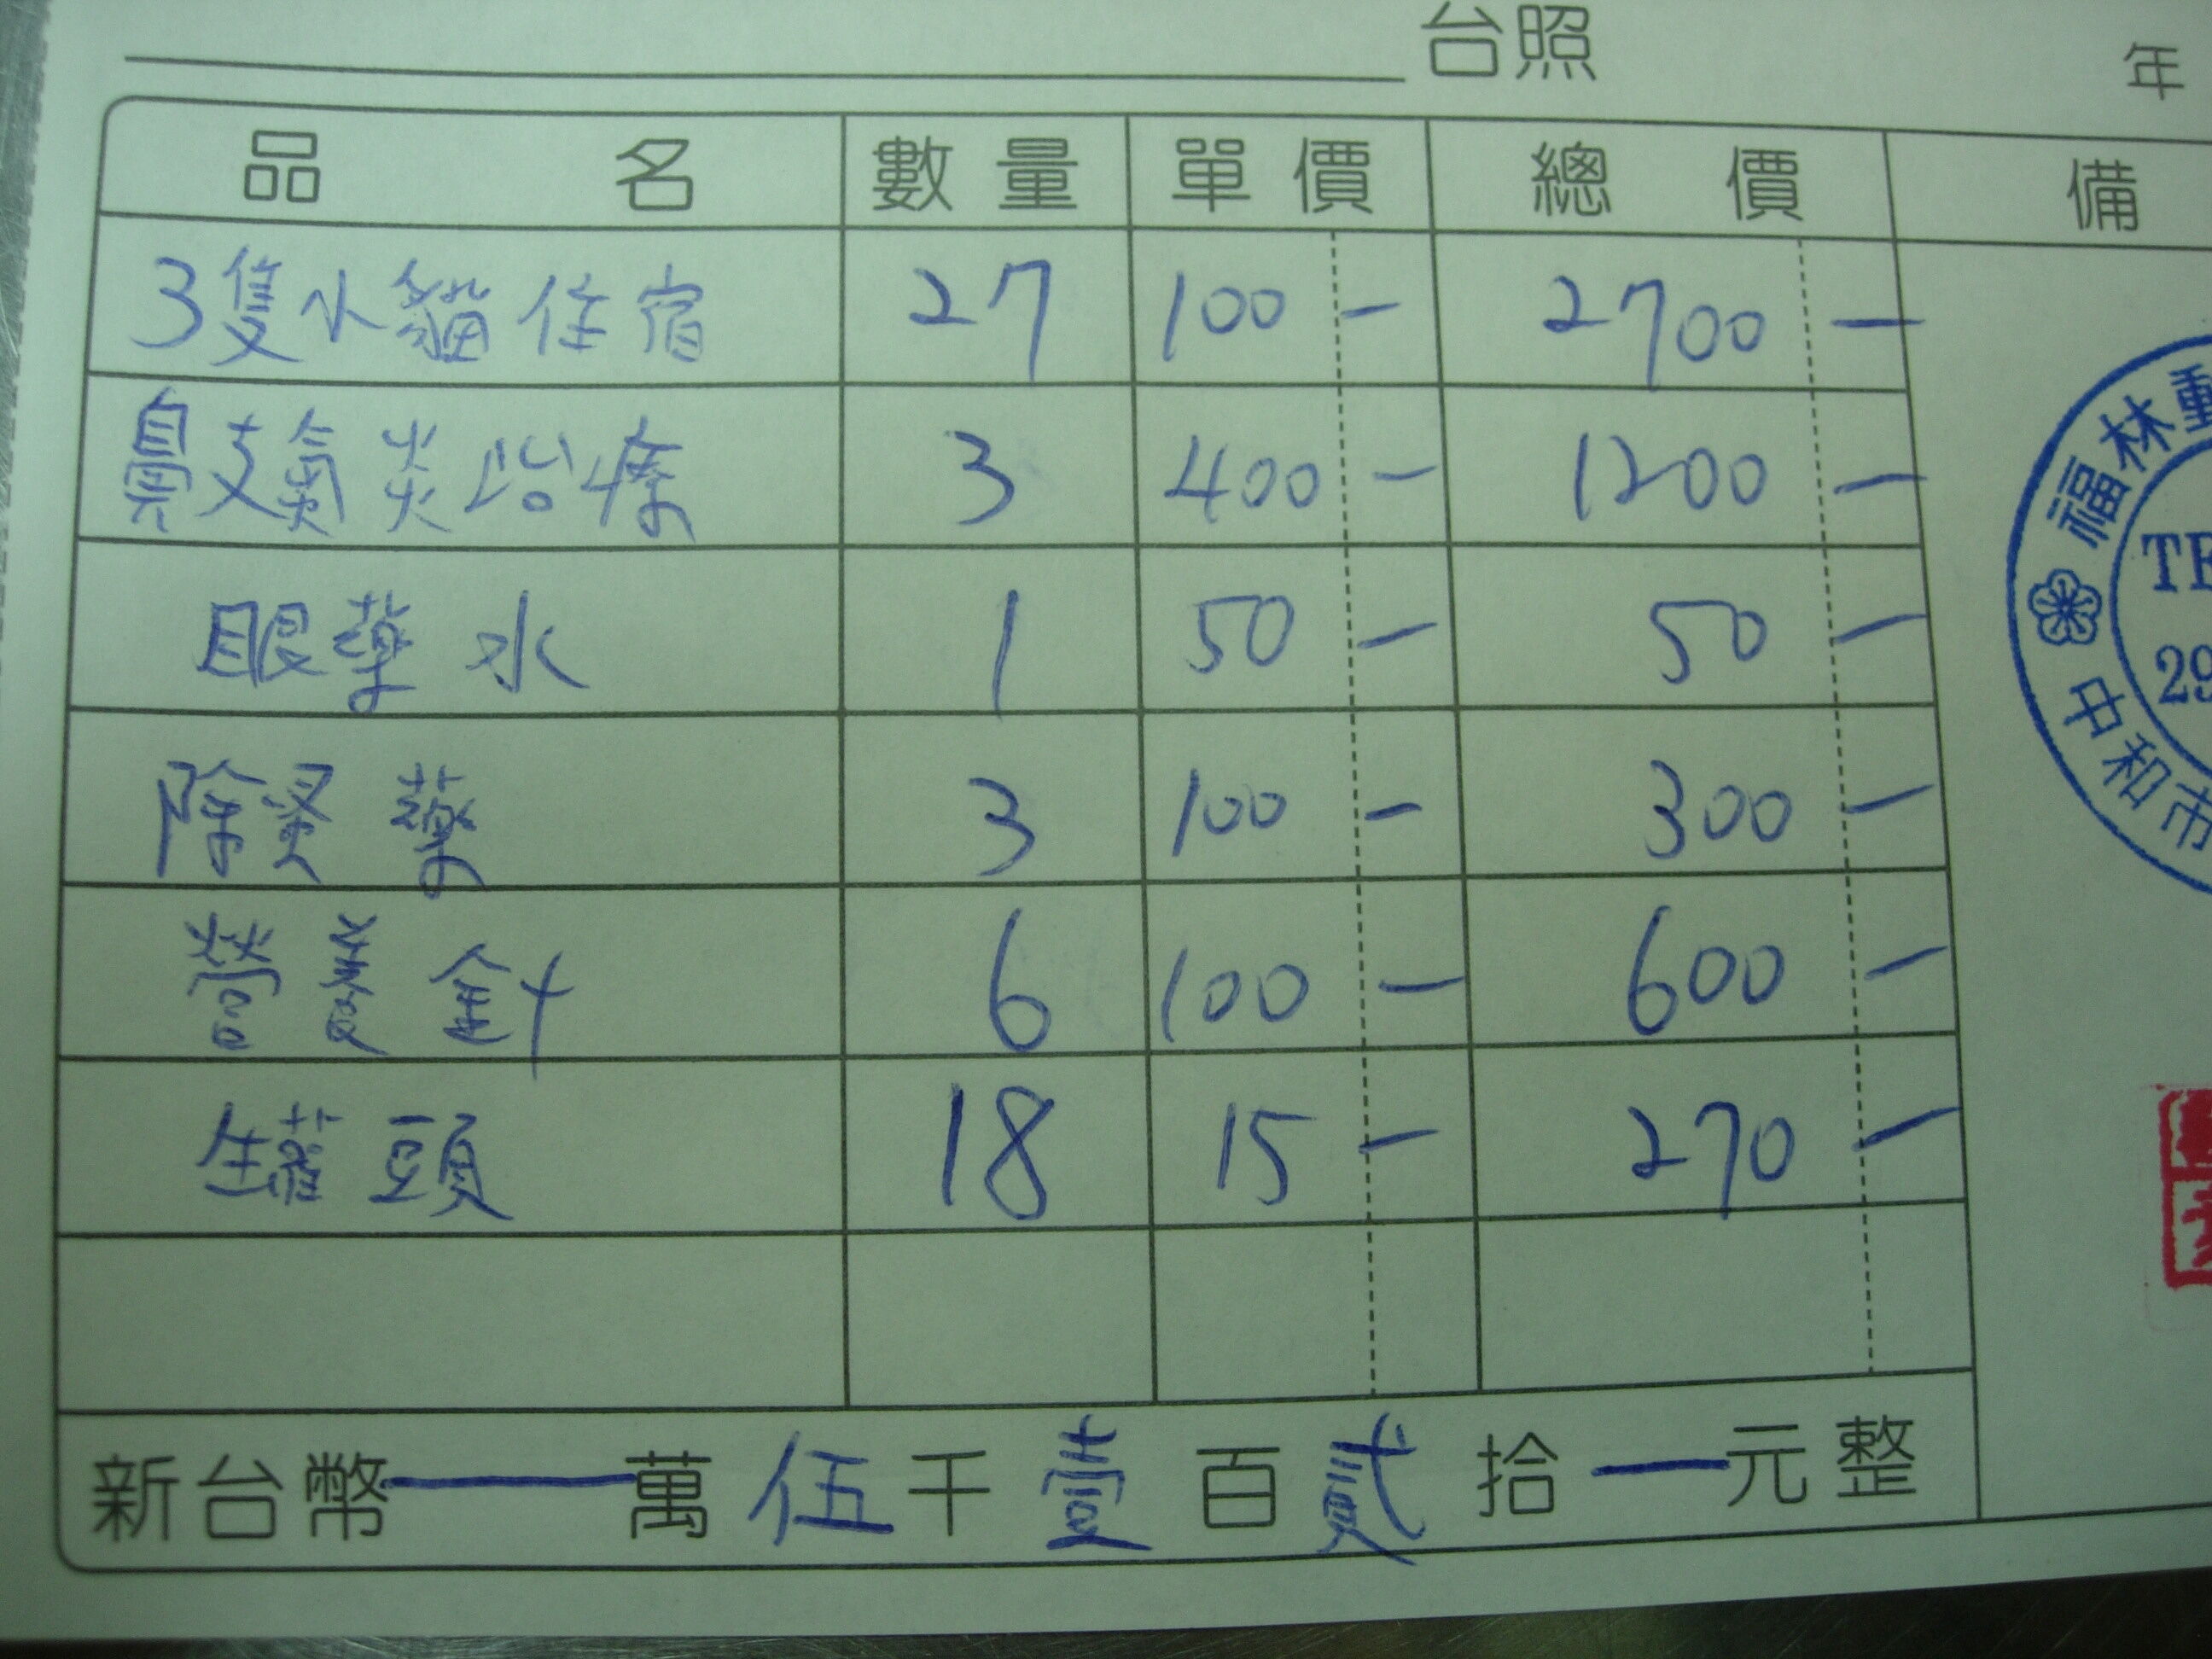 台照 年
品名 數量 單價 總價 備
3隻小貓住宿 27 100 — 2700 —
鼻支氣炎治療 3 400 — 1200 —
眼藥水 1 50 — 50 —
除蚤藥 3 100 — 300 —
營養針 6 100 — 600 —
罐頭 18 15 — 270 —
新台幣 — 萬 伍 千 壹 百 貳 拾 — 元整
福林動
TE
29
中和市